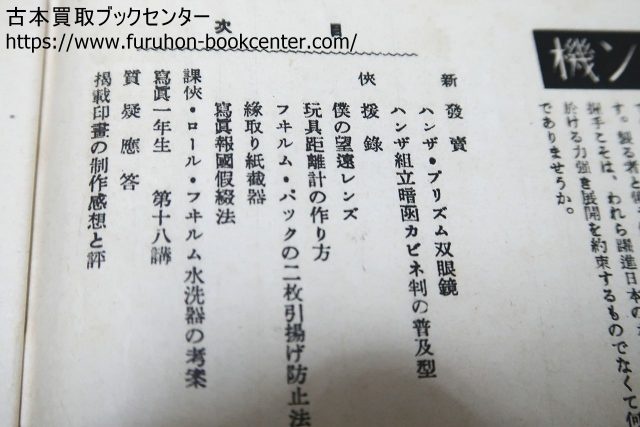 古本買取ブックセンター
https://www.furuhon-bookcenter.com/
機ン
す。製る者と
握手こそは、われら躍進日本の
於ける力強き展開を約束するものでなくて何
でありませうか。
目次
新發賣
ハンザ・プリズム双眼鏡
ハンザ組立暗函カビネ判の普及型
俠援錄
僕の望遠レンズ
玩具距離計の作り方
フヰルム・パックの二枚引揚げ防止法
緣取り紙截器
寫眞報國假綴法
課俠・ロール・フヰルム水洗器の考案
寫眞一年生 第十八講
質疑應答
揭載印畫の制作感想と評